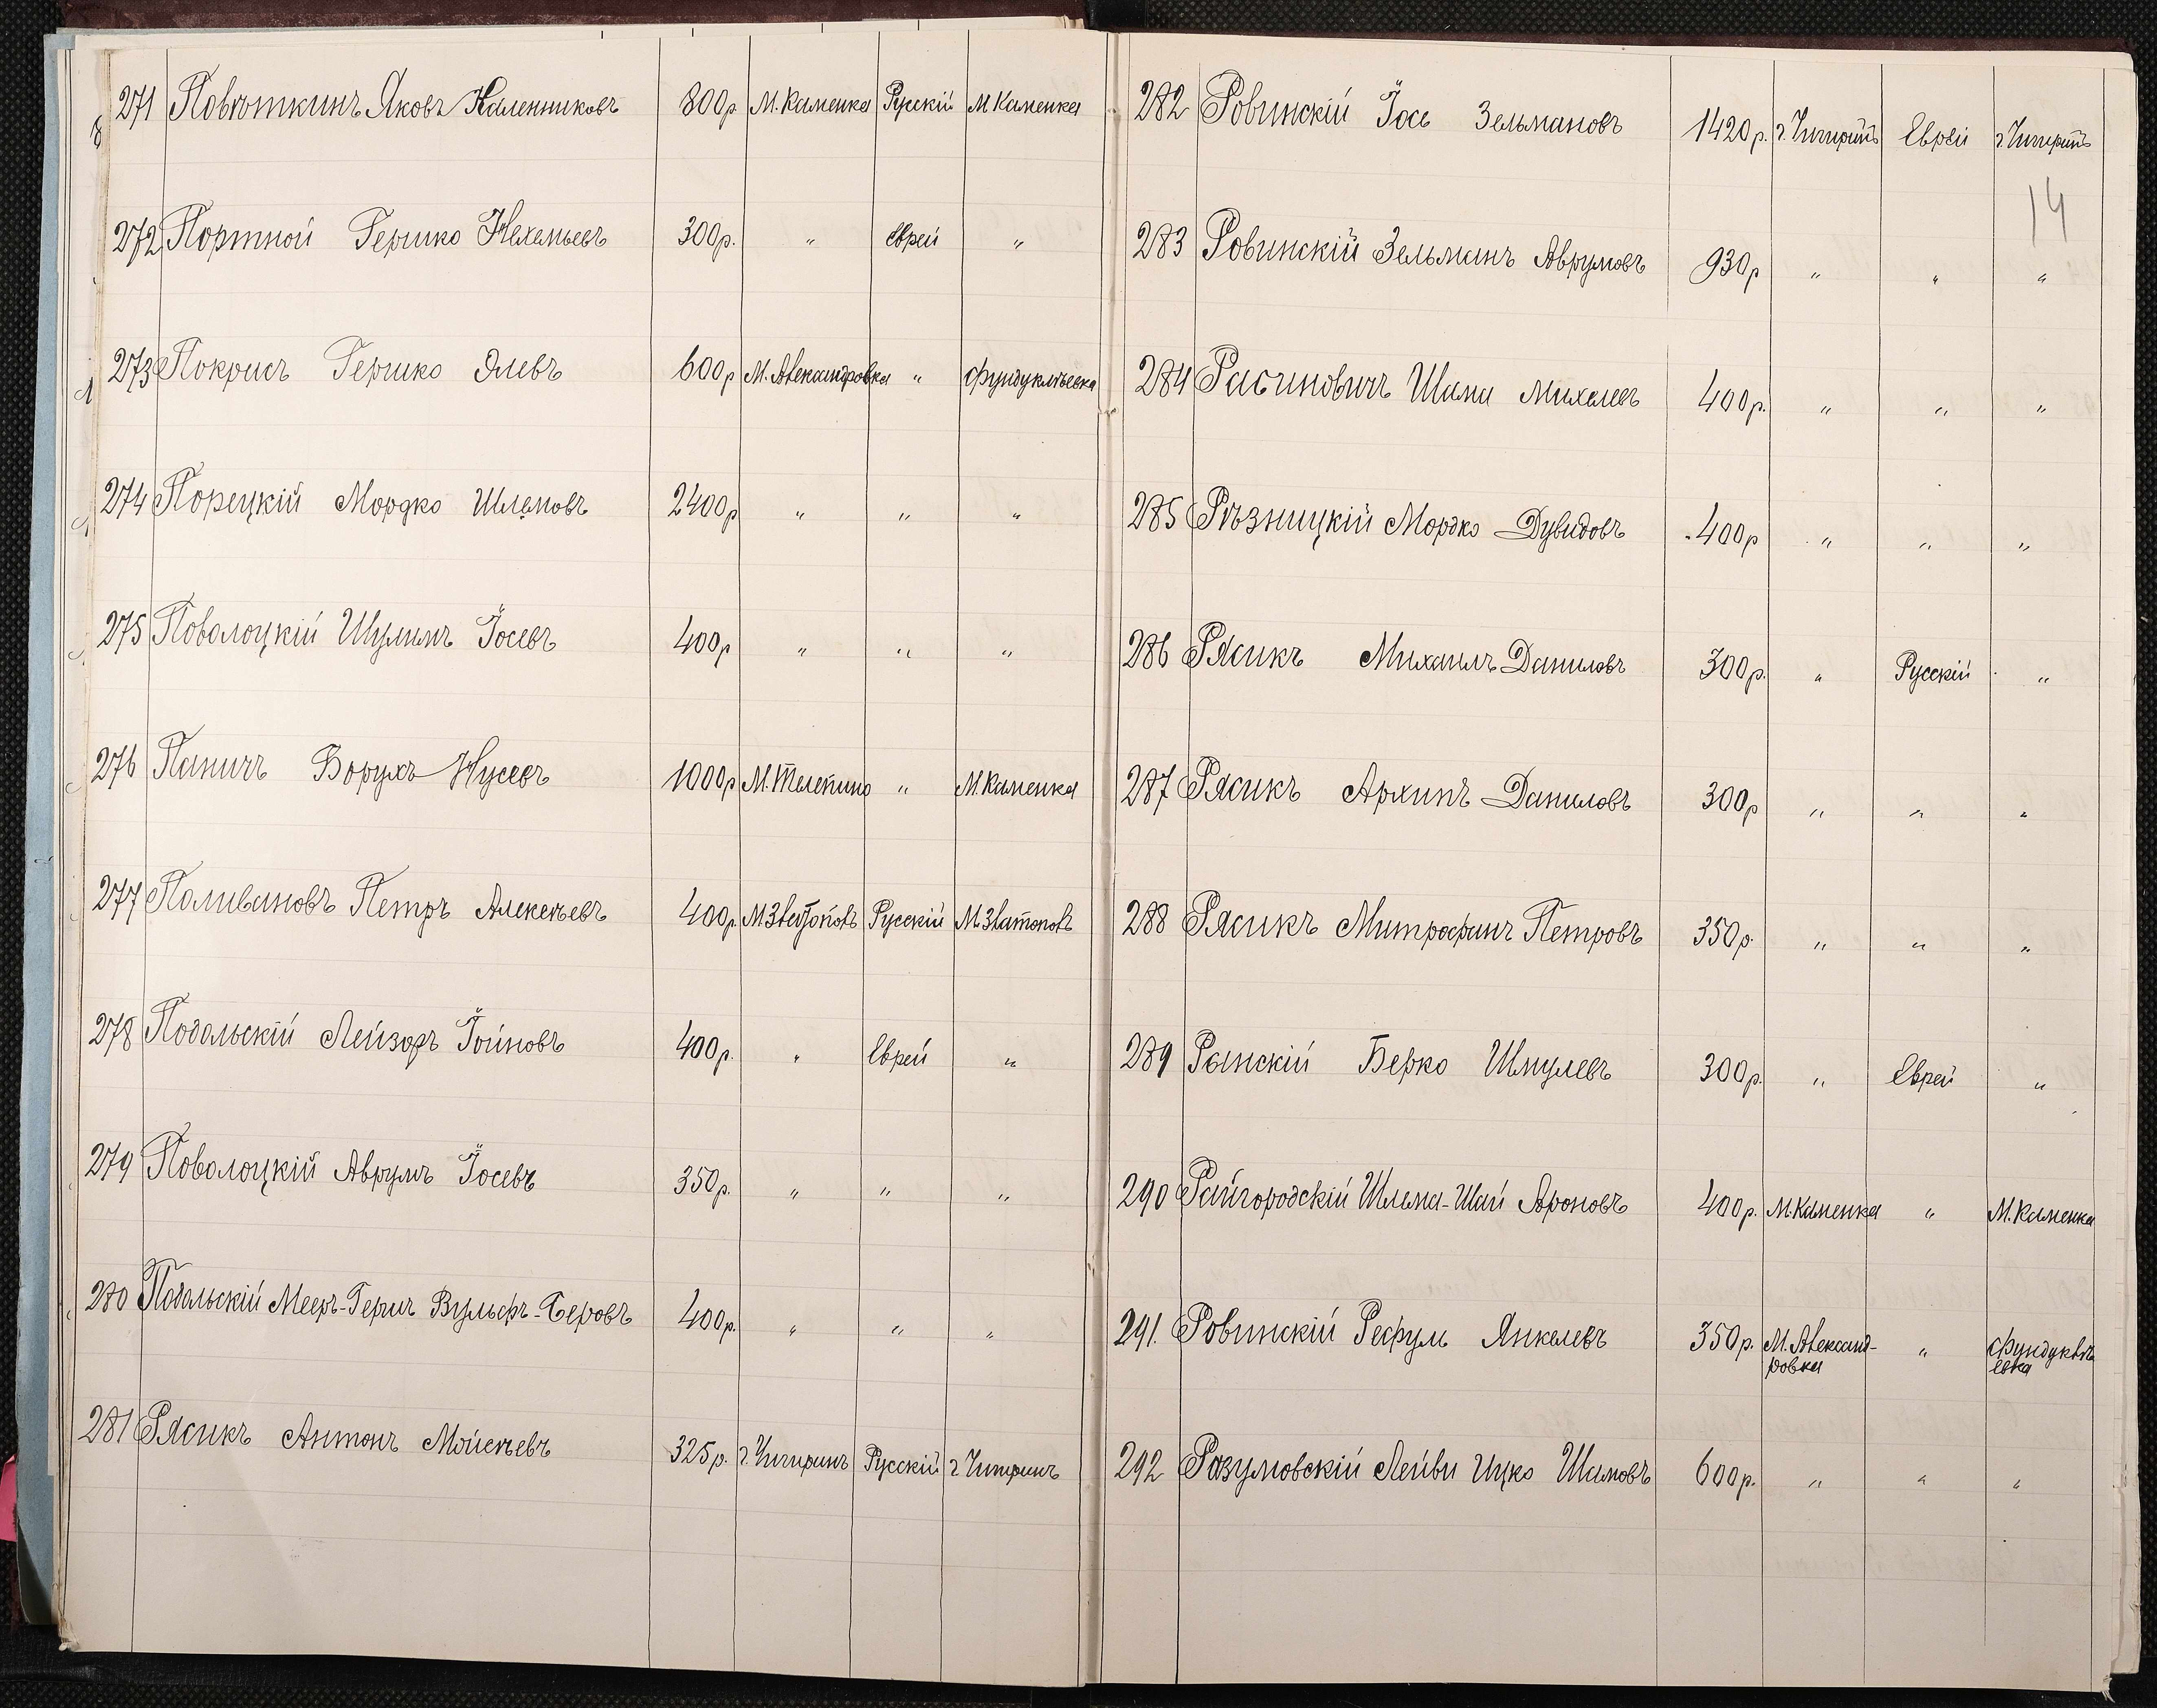 271 Повѣткинъ Яковъ Каленниковъ 800р М. Каменка Русскій М Каменка
272 Портной Гершко Нехемьевъ 300р. " Еврей "
273 Покрисъ Гершко Элевъ 600р М. Александровка " Фундуклѣевка
274 Порецкій Мордко Шлемовъ 2400р " " "
275 Поволоцкій Шулимъ Іосевъ 400р " " "
276 Паничъ Борухъ Нусевъ 1000р М. Телепино " М. Каменка
277 Поливановъ Петръ Алексѣевъ 400р. М Златополь Русскій М. Златополь
278 Подольскій Лейзоръ Іойновъ 400р. " Еврей "
279 Поволоцкій Аврумъ Іосевъ 350р. " " "
280 Подольскій Мееръ-Гершъ Вульфъ-Беровъ 400р. " " "
281 Рясикъ Антонъ Мойсѣевъ 325р. г. Чигиринъ Русскій г Чигиринъ
14
282 Ровинскій Іось Зельмановъ 1420р. г. Чигиринъ Еврей г. Чигиринъ
283 Ровинскій Зельманъ Аврумовъ 930р " " "
284 Расиновичъ Шама Михелевъ 400р. " " "
285 Рѣзницкій Мордко Дувидовъ 400р " " "
286 Рясикъ Михаилъ Даниловъ 300р. " Русскій "
287 Рясикъ Архипъ Даниловъ 300р " " "
288 Рясикъ Митрофанъ Петровъ 350р. " " "
289 Рынскій Берко Шмулевъ 300р. " Еврей "
290 Райгородскій Шлема-Шай Ароновъ 400р. М. Каменка " М. Каменка
291. Ровинскій Рефуль Янкелевъ 350р. М. Александ- " Фундуклѣ
ровка евка
292 Разумовскій Лейви Ицко Шимовъ 600р. " " "